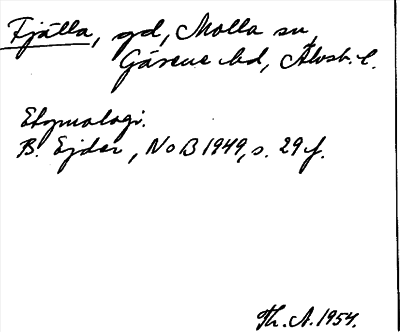 Fjälla, gd, Molla sn,
Gäsene hd, Älvsb. l.
Etymologi.
B. Ejder, NoB 1949, s. 29 f.
Th. A. 1954.